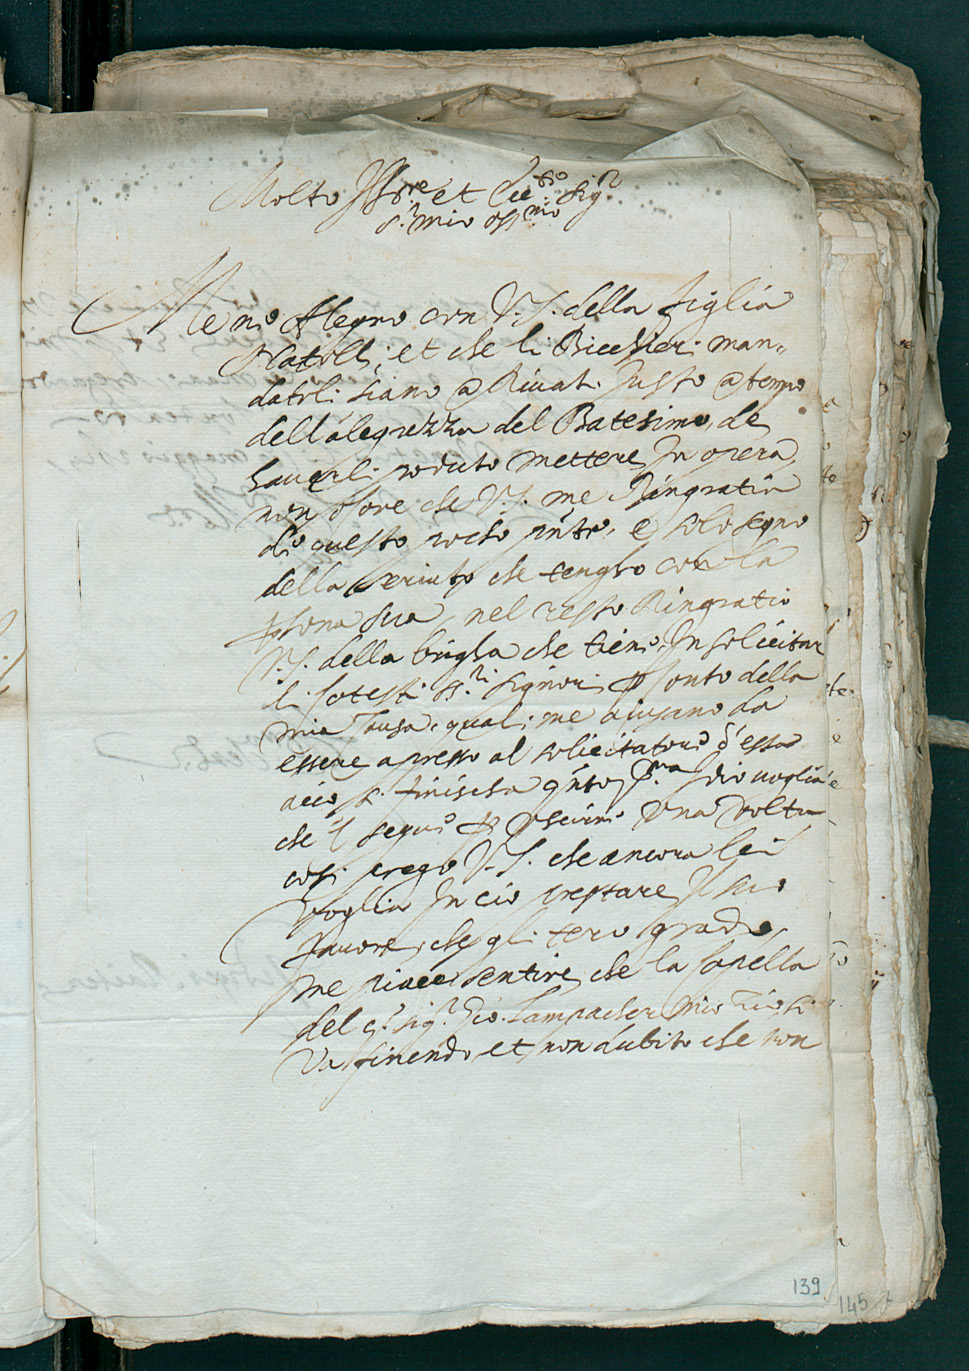 Molto Ill.re et Ecc.mo Sig.r
S.r mio oss.mo
Me ne Alegro con V.S. della figlia
Natoli, et che li Bicchieri man-
datoli siano arivati Justo a tempo
dell'alegrezza del Batesimo, de
haverli poduto mettere In opera
non ocore che V.S. me Ringratia
di questo poco pnte, e solo segno
della che tengho con la
psona sua, nel resto Ringratio
V.S. della brigha che tiene In solicitar
li Cotesti ss.ri Signori p conto della
mia Causa, quali me avisano da
essere apresso al solicitatore d'essa
acio si finischa qnto p.ma Idio voglia
che il segua p Uscirne Una volta
cosi prego V.S. che ancora lei
voglia In cio prestare Il suo
favore, che gli tero grado,
me piace sentire che la Capella
del q. sig.r Gio. Lampacher mio Zio si
va finendo, et non dubito che non
139
145